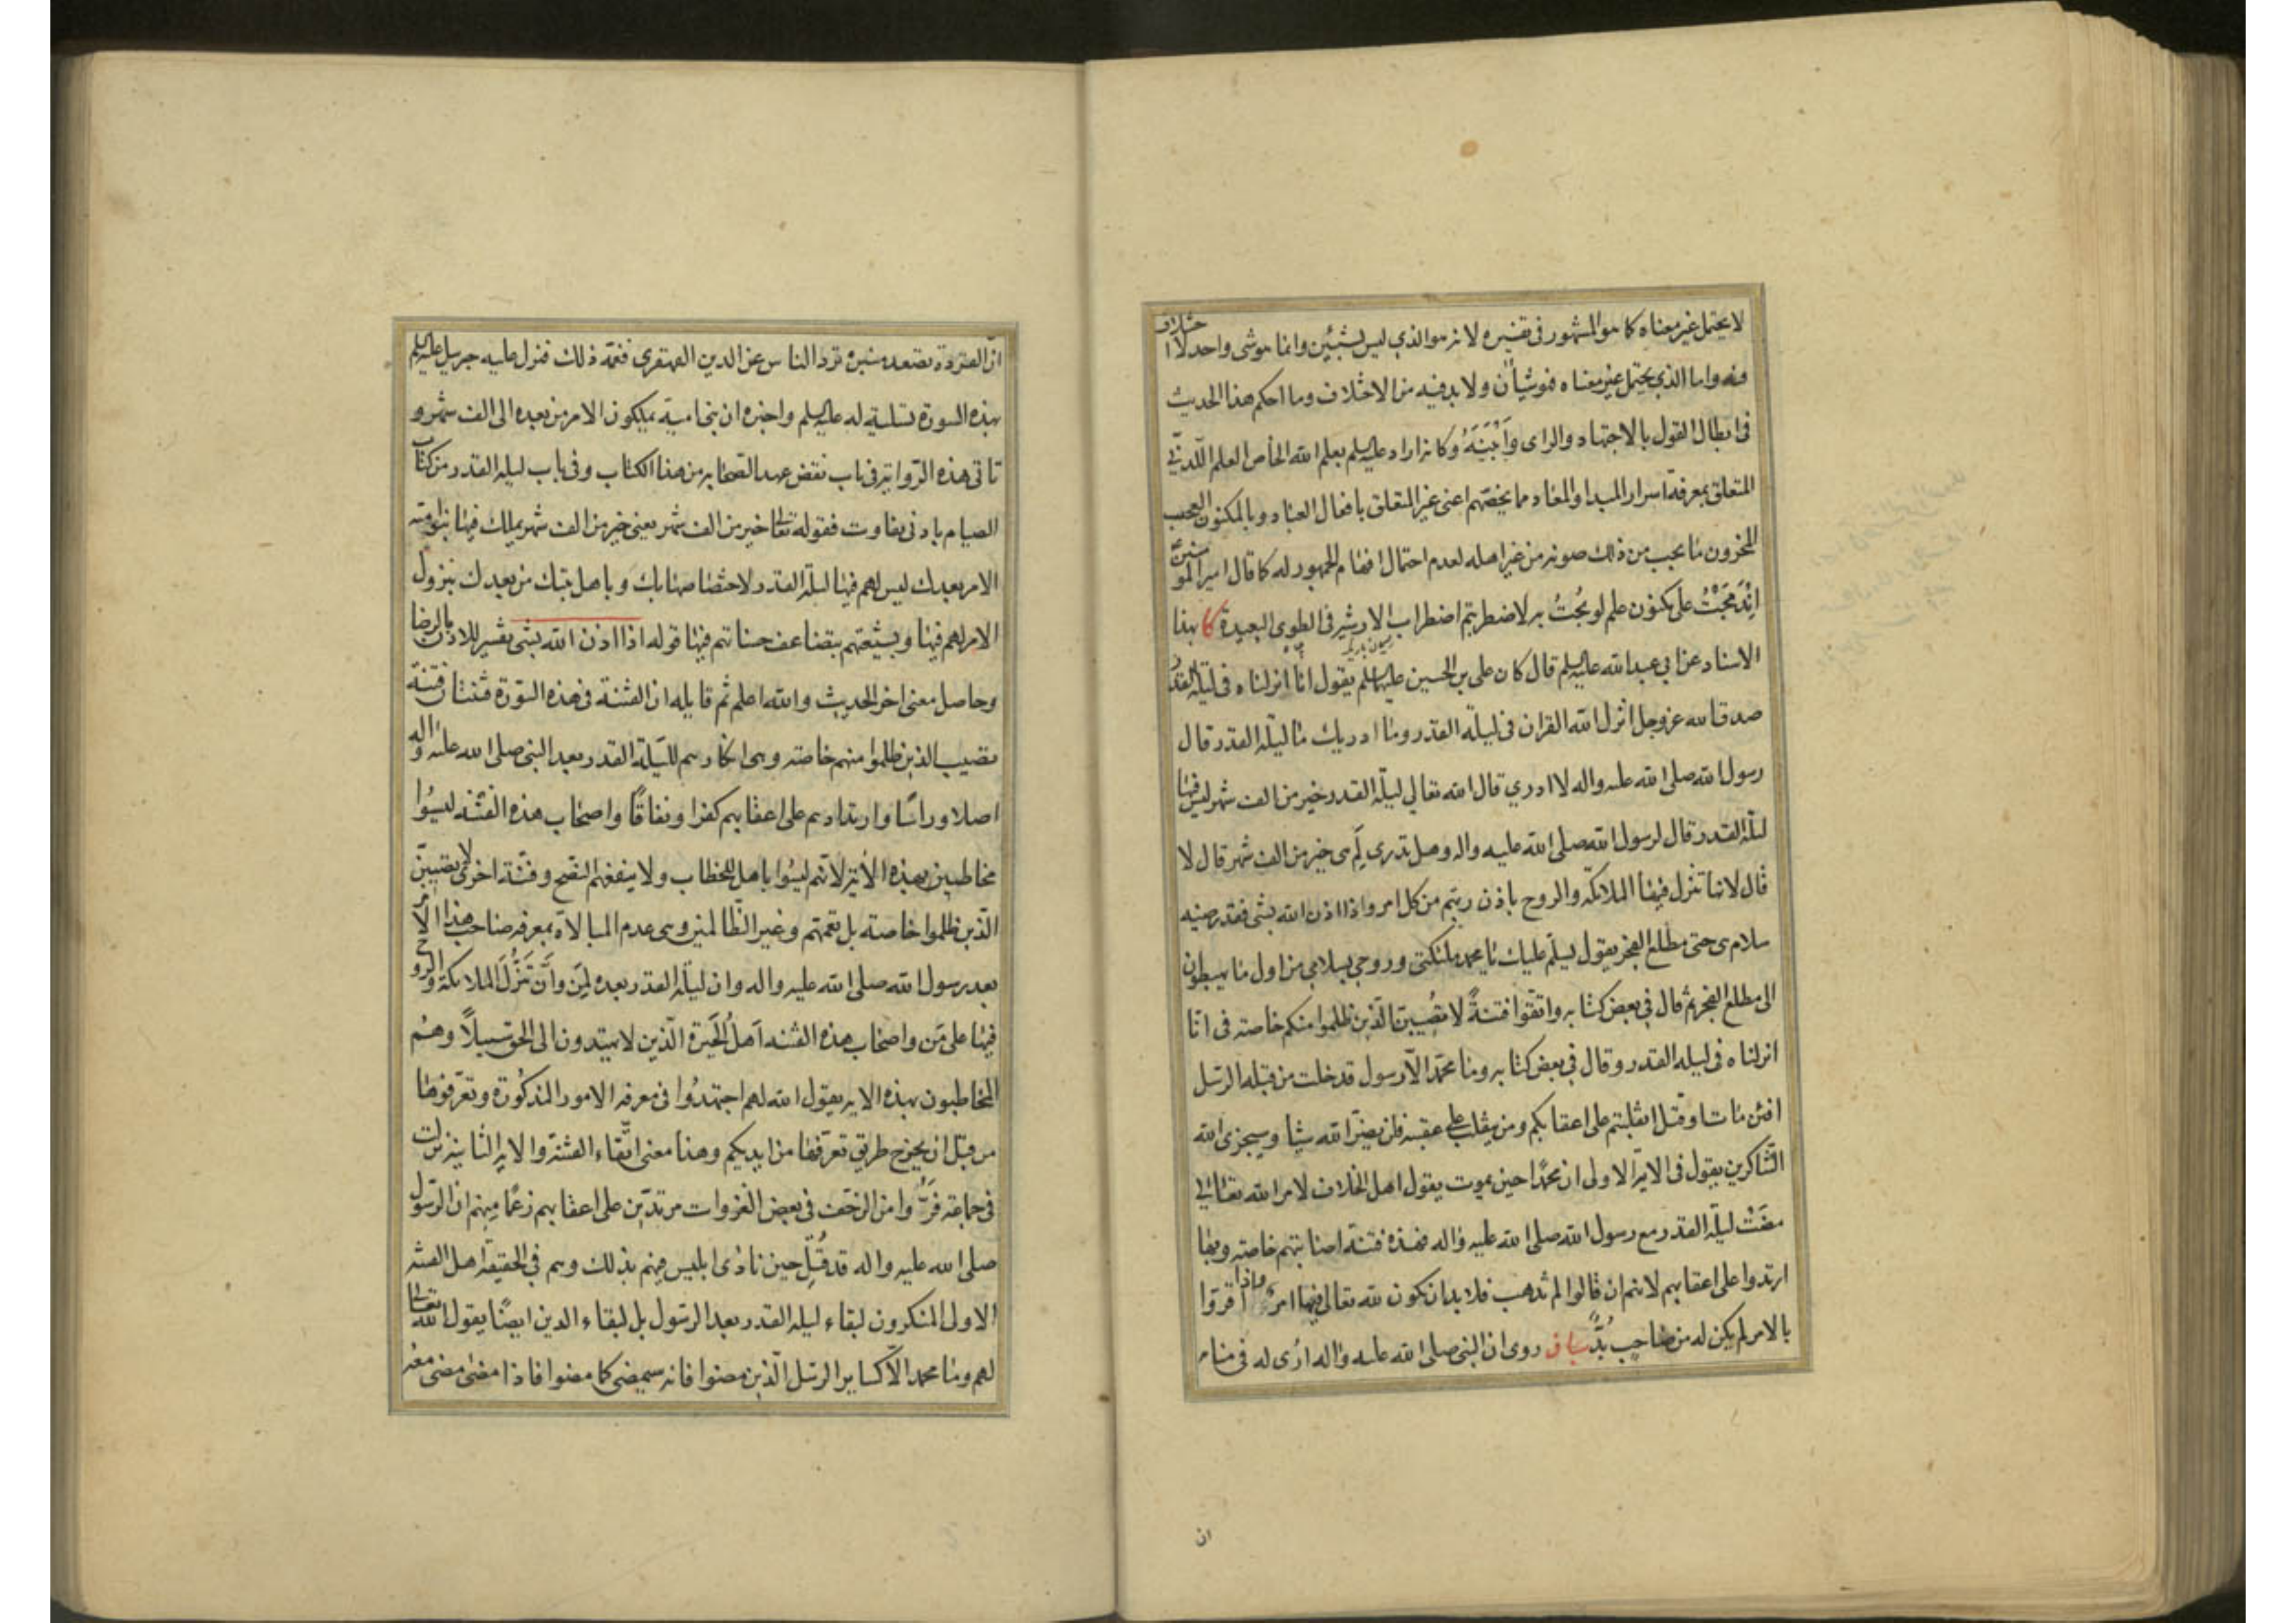 لا يحتمل غير معناه كما هو المشهور في تفسيره لانه هو الذي ليس بشيئين وانما هو شي واحد لا اختلاف
فيه واما الذي يحتمل غير معناه فهو شيأن ولا بد فيه من الاختلاف وما احكم هذا الحديث
في ابطال القول بالاجتهاد والراى وَاَبْيَنَهُ وكانه اراد عليه السلم بعلم الله الخاص العلم اللّدنّي
المتعلق بمعرفة اسرار المبدا والمعاد مما يخصّهم اعنى غير المتعلق بافعال العباد وبالمكنون العجيب
المخزون ما يجب من ذلك صونه من غير اهله لعدم احتمال افهام الجمهور له كما قال امير المؤمنين
اِنْدَمَجْتُ على مكنون علم لو بُحْتُ به لاضطربتم اضطراب الارشية في الطوى البعيدة كا بهذا
الاسناد عن ابي عبد الله عليه السلم قال كان علي بن الحسين عليهما السلم يقول انا انزلناه في ليلة القدر
صدق الله عز وجل انزل الله القران في ليلة القدر وما ادريك ما ليلة القدر قال
رسول الله صلى الله عليه واله لا ادري قال الله تعالى ليلة القدر خير من الف شهر ليس فيها
ليلة القدر قال لرسول الله صلى الله عليه واله وهل تدري لِمَ هى خير من الف شهر قال لا
قال لانها تنزل فيها الملائكة والروح باذن ربهم من كل امر واذا اذن الله بشي فقد رضيه
سلام هى حتى مطلع الفجر يقول يسلّم عليك يا محمد ملئكتي وروحي بسلامي من اول ما يهبطون
الى مطلع الفجر ثم قال في بعض كتابه واتقوا فتنةً لا تُصيبنّ الّذين ظلموا منكم خاصة فى انا
انزلناه فى ليلة القدر وقال في بعض كتابه وما محمّد الّا رسول قد خلت من قبله الرسل
افئن مات او قتل انقلبتم على اعقابكم ومن ينقلب على عقبيه فلن يضرّ الله شيئا وسيجزى الله
الشّاكرين يقول فى الاية الاولى ان محمّدا حين يموت يقول اهل الخلاف لامر الله تعالى
مضَتْ ليلة القدر مع رسول الله صلى الله عليه واله فهذه فتنة اصابتهم خاصة وبها
ارتدوا على اعقابهم لانهم ان قالوا لم تذهب فلا بد ان يكون لله تعالى فيها امرٌ واذا اقروا
بالامر لم يكن له من صاحبٍ بُدٌّ بيان روى ان النبي صلى الله عليه واله ارُى له في منامه
ان
انّ القردة تصعد منبره تردّ الناس عن الدين القهقرى فغمّه ذلك فنزل عليه جبرئيل عليه السلم
بهذه السورة تسلية له عليه السلم واخبره ان بنى امية يملكون الامر من بعده الى الف شهر و
تاتى هذه الرّواية في باب نقض عهد الصّحابة من هذا الكتاب وفى باب ليلة القدر من كتاب
الصيام بادنى تفاوت فقوله تعالى خير من الف شهر يعنى خير من الف شهر يملك فيها بنو امية
الامر بعدك ليس لهم فيها ليلة القدر لاختصاصها بك وباهل بيتك من بعدك بنزول
الامر لهم فيها وبشيعتهم بتضاعف حسناتهم فيها قوله اذا اذن الله بشى تفسير للاذن بالرضا
وحاصل معنى اخر الحديث والله اعلم ثم قايله ان الفتنة فى هذه السّورة فتنتان فتنة
تصيب الذين ظلموا منهم خاصة وهى انكارهم لليلة القدر بعد النبي صلى الله عليه واله
اصلا وراسًا وارتدادهم على اعقابهم كفرا ونفاقًا واصحاب هذه الفتنة ليسُوا
مخاطبين بهذه الاية لانهم ليسُوا باهل للخطاب ولا ينفعهم النصح وفتنة اخرى لا تصيبنّ
الّذين ظلموا خاصة بل تعمّهم وغير الظّالمين وهى عدم المبالاة بمعرفة صاحب هذا الامر
بعد رسول الله صلى الله عليه واله وان ليلة القدر بعده لِمَن وانّ تنزُّلَ الملائكة والروح
فيها على مَن واصحاب هذه الفتنة اَهل الحَيْرة الّذين لا يهتدون الى الحق سبيلًا وهُم
المخاطبون بهذه الاية يقول الله لهم اجتهدُوا فى معرفة الامور المذكورة وتعرّفوها
من قبل ان يخرج طريق تعرّفها من ايديكم وهذا معنى اتّقاء الفتنة والاية الثانية نزلت
فى جماعة فَرُّوا من الزحف في بعض الغزوات مرتدّين على اعقابهم زعمًا منهم ان الرّسول
صلى الله عليه واله قد قُتل حين نادى ابليس فيهم بذلك وهم في الحقيقة اهل الفتنة
الاولى المنكرون لبقاء ليلة القدر بعد الرسول بل لبقاء الدين ايضًا يقول الله تعالى
لهم وما محمد الّا كساير الرسل الّذين مضوا فانه سيمضى كما مضوا فاذا مضى مضى معه